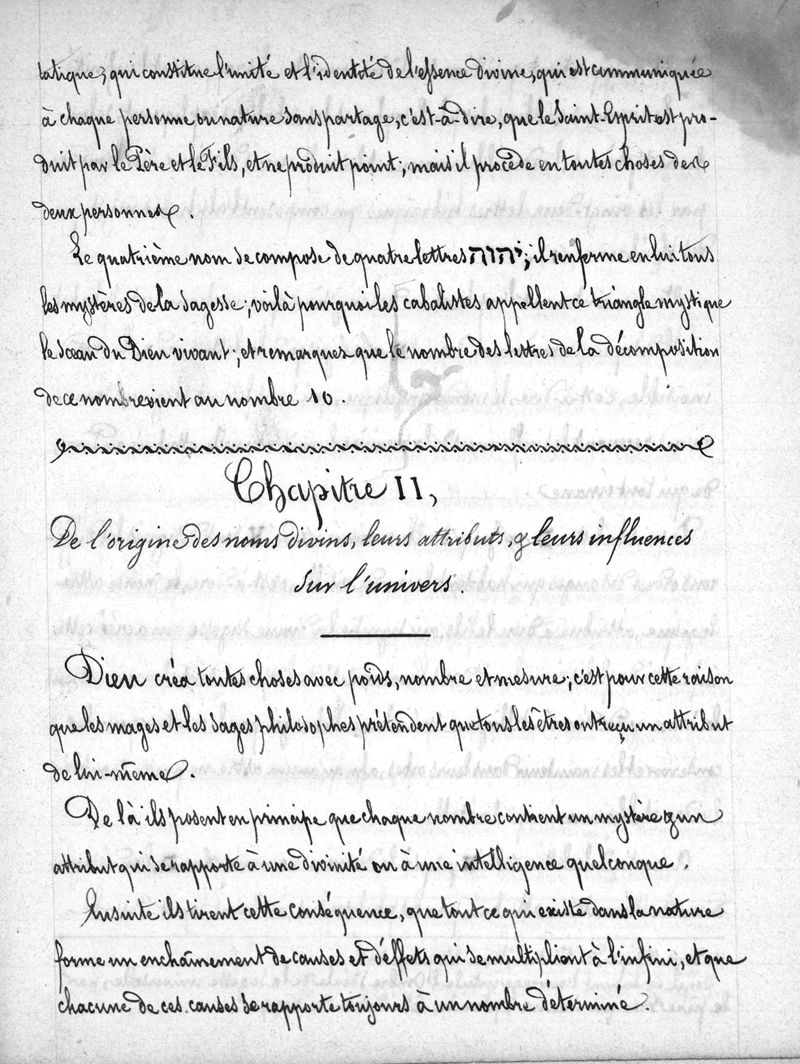 tatique; qui constitue l'unité et l'identité de l'essence divine, qui est communiquée
à chaque personne ou nature sans partage, c'est-à-dire, que le Saint-Esprit est pro-
duit par le Père et le Fils, et ne produit point; mais il procède en toutes choses des
deux personnes.
Le quatrième nom se compose de quatre lettres יהוה; il renferme en lui tous
les mystères de la sagesse; voilà pourquoi les cabalistes appellent ce triangle mystique
le sceau du Dieu vivant; et remarquez que le nombre des lettres de la décomposition
de ce nom revient au nombre 10.
Chapitre II,
De l'origine des noms divins, leurs attributs, & leurs influences
sur l'univers.
Dieu créa toutes choses avec poids, nombre et mesure; c'est pour cette raison
que les mages et les sages philosophes prétendent que tous les êtres ont reçu un attribut
de lui-même.
De là ils posent en principe que chaque nombre contient un mystère & un
attribut qui se rapporte à une divinité ou à une intelligence quelconque.
Ensuite ils tirent cette conséquence, que tout ce qui existe dans la nature
forme un enchaînement de causes et d'éffets qui se multiplient à l'infini, et que
chacune de ces causes se rapporte toujours à un nombre déterminé.